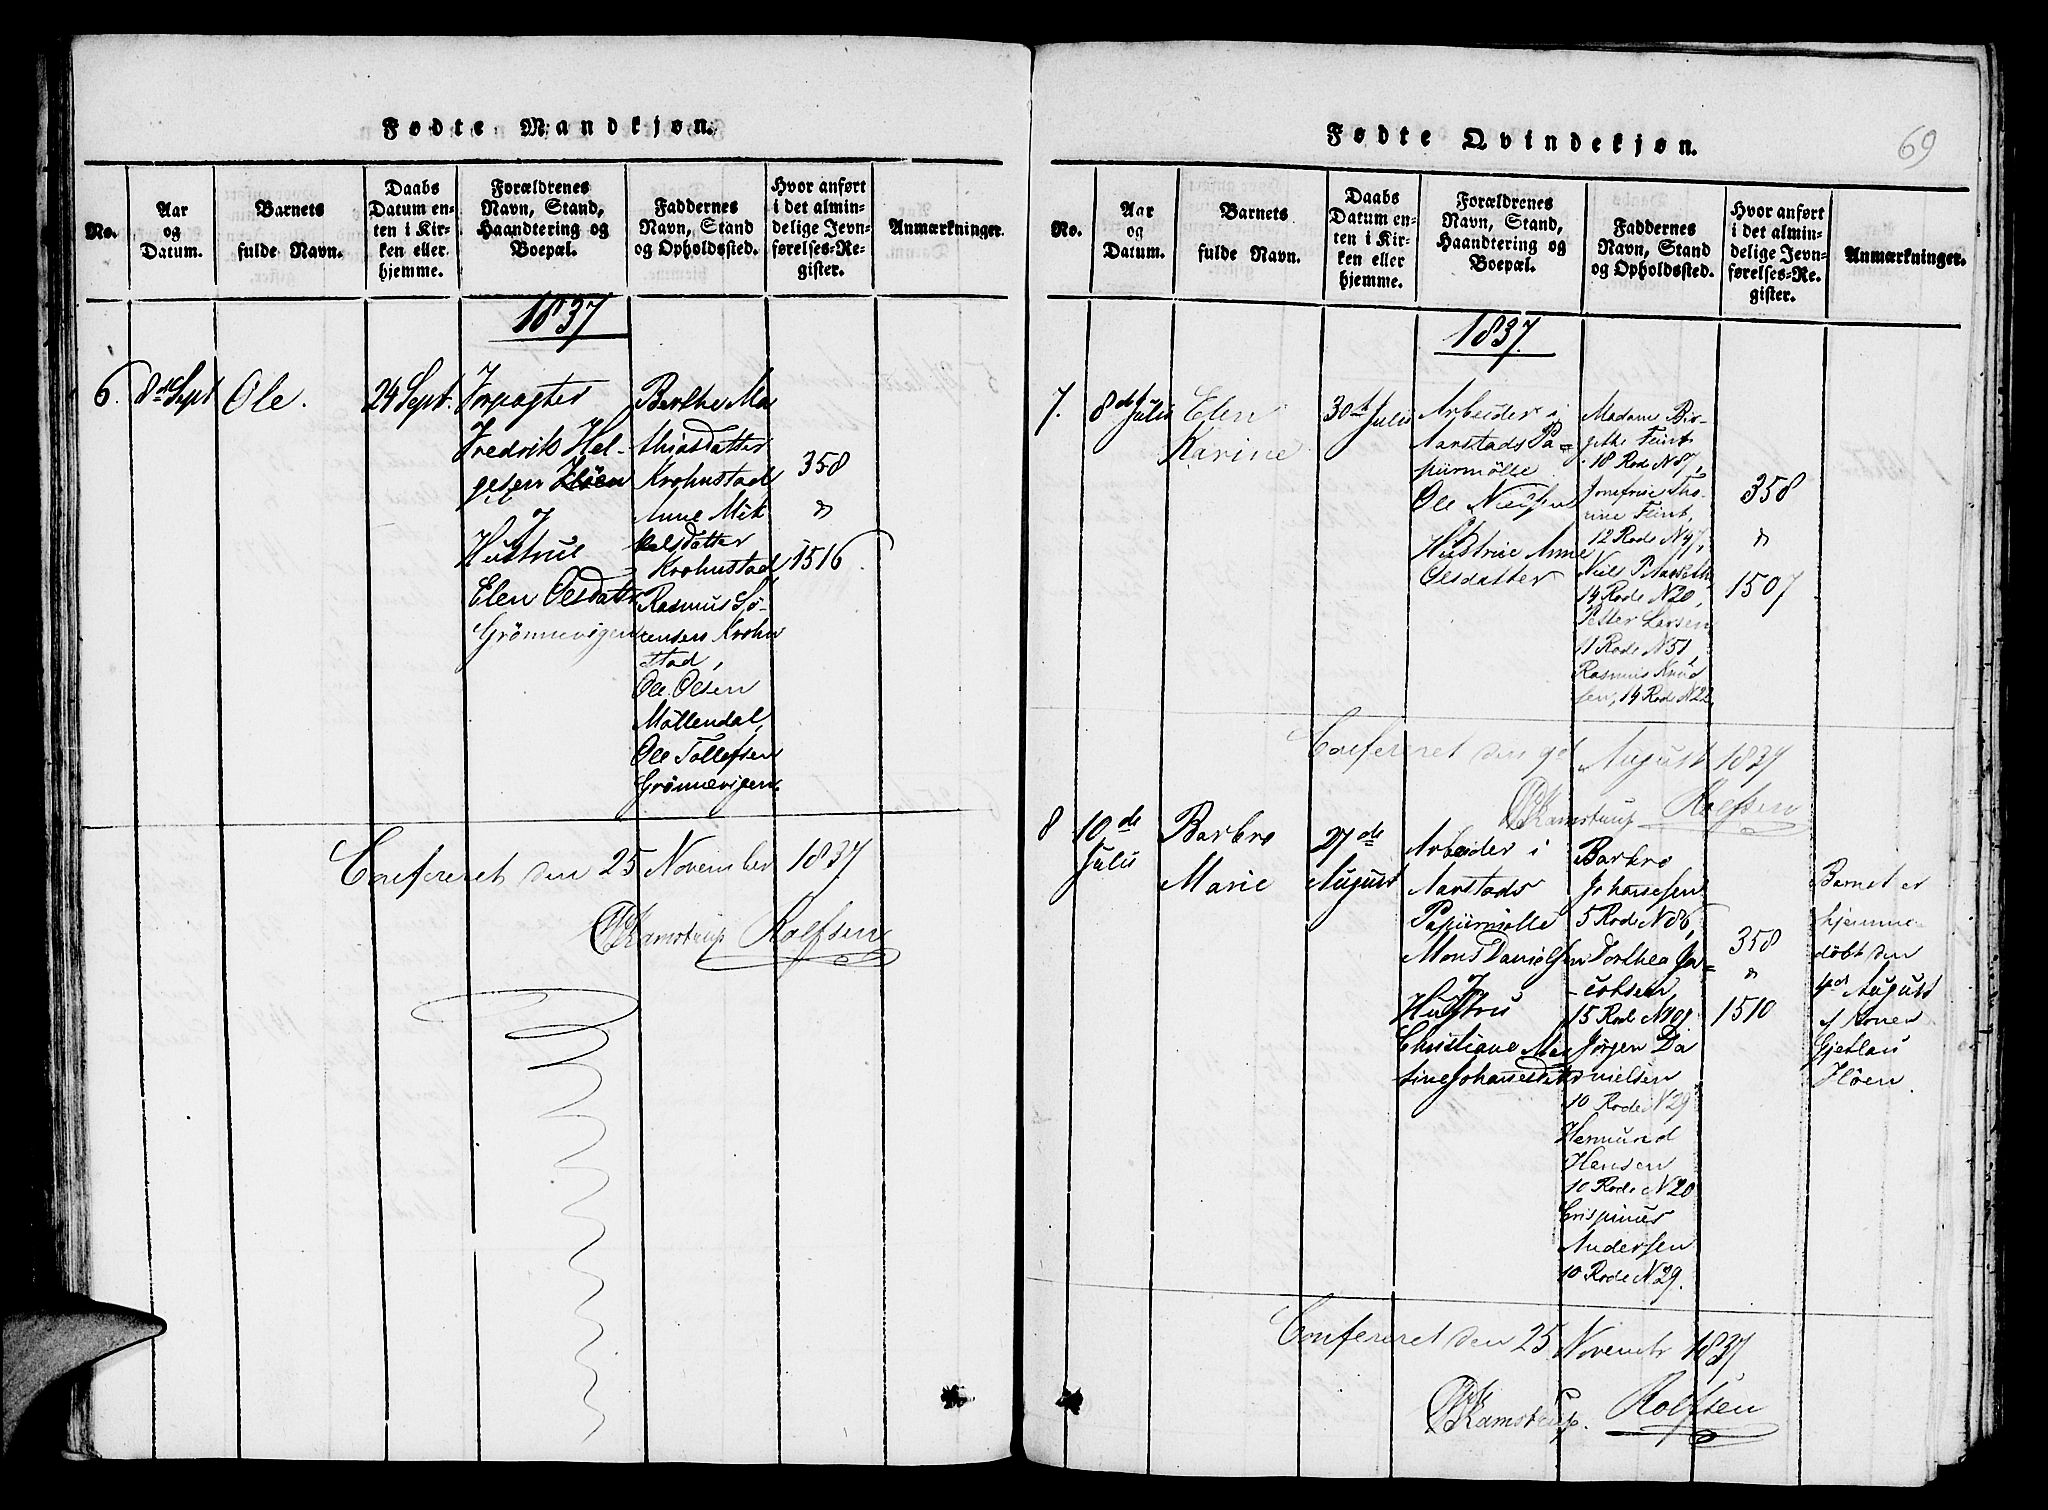 Fødte Mandkjøn.
No.
Aar
og
Datum.
Barnets
fulde Navn.
Daabs
Datum en-
ten i Kir-
ken eller
hjemme.
Forældrenes
Navn, Stand,
Haandtering og
Boepæl.
Faddernes
Navn, Stand
og Opholdssted.
Hvor anført
i det almin-
delige Jevn-
førelses-Re-
gister.
Anmærkninger.
1837
6.
8de Sept
Ole.
24 Sept.
Forpagter
Fredrik Hel-
gesen
Hustrue
Elen Olsdatter
Grönnevigen
Berthe Ma
thiasdatter
Krohnstad
Anne Mik
kelsdatter
Krohnstad,
Rasmus Sö-
rensen Krohn
stad,
Ole Olsen
Möllendal,
Ole Tollefsen
Grönnevigen.
358
&
1516.
Confereret den 25 November 1837
Kamstrup Rolfsen
Fødte Qvindekjøn.
69
No.
Aar
og
Datum.
Barnets
fulde Navn.
Daabs
Datum en-
ten i Kir-
ken eller
hjemme.
Forældrenes
Navn, Stand,
Haandtering og
Boepæl.
Faddernes
Navn, Stand
og Opholdssted.
Hvor anført
i det almin-
delige Jevn-
førelses-Re-
gister.
Anmærkninger.
1837.
7.
8de Julii
Elen
Karine
30t Julii
Arbeider i
Aarstads Pa-
piirmölle
Ole Nielsen
Hustrue Anne
Olsdatter
Madame Bir-
gitte Feint
18 Rode N 87,
Tho-
rine Feint,
12 Rode N 47,
Niels P.
14 Rode N 20,
Petter Larsen
11 Rode N 51,
Rasmus Knud
sen, 14 Rode N 22
358
&
1507
Confereret den 9d August 1837
Kamstrup Rolfsen
8
10de
Julii
Barbro
Marie
27de
August
Arbeider i
Aarstads
Papiirmölle
Mons Danielsen
Hustru
Christiane Mar
tine Johannesdatter
Barbro
Johannesen
5 Rode N 86,
Dorthea Ja-
cobsen
15 Rode N 101
Jörgen Da
nielsen
10 Rode N 29
Hermund
Hansen
10 Rode N 20
Crispinus
Andersen
10 Rode N 29.
358
&
1510
Barnet er
hjemme-
döbt den
4de August
af Konen
Gjertru
Flöen.
Confereret den 25 Novembr 1837
Kamstrup. Rolfsen